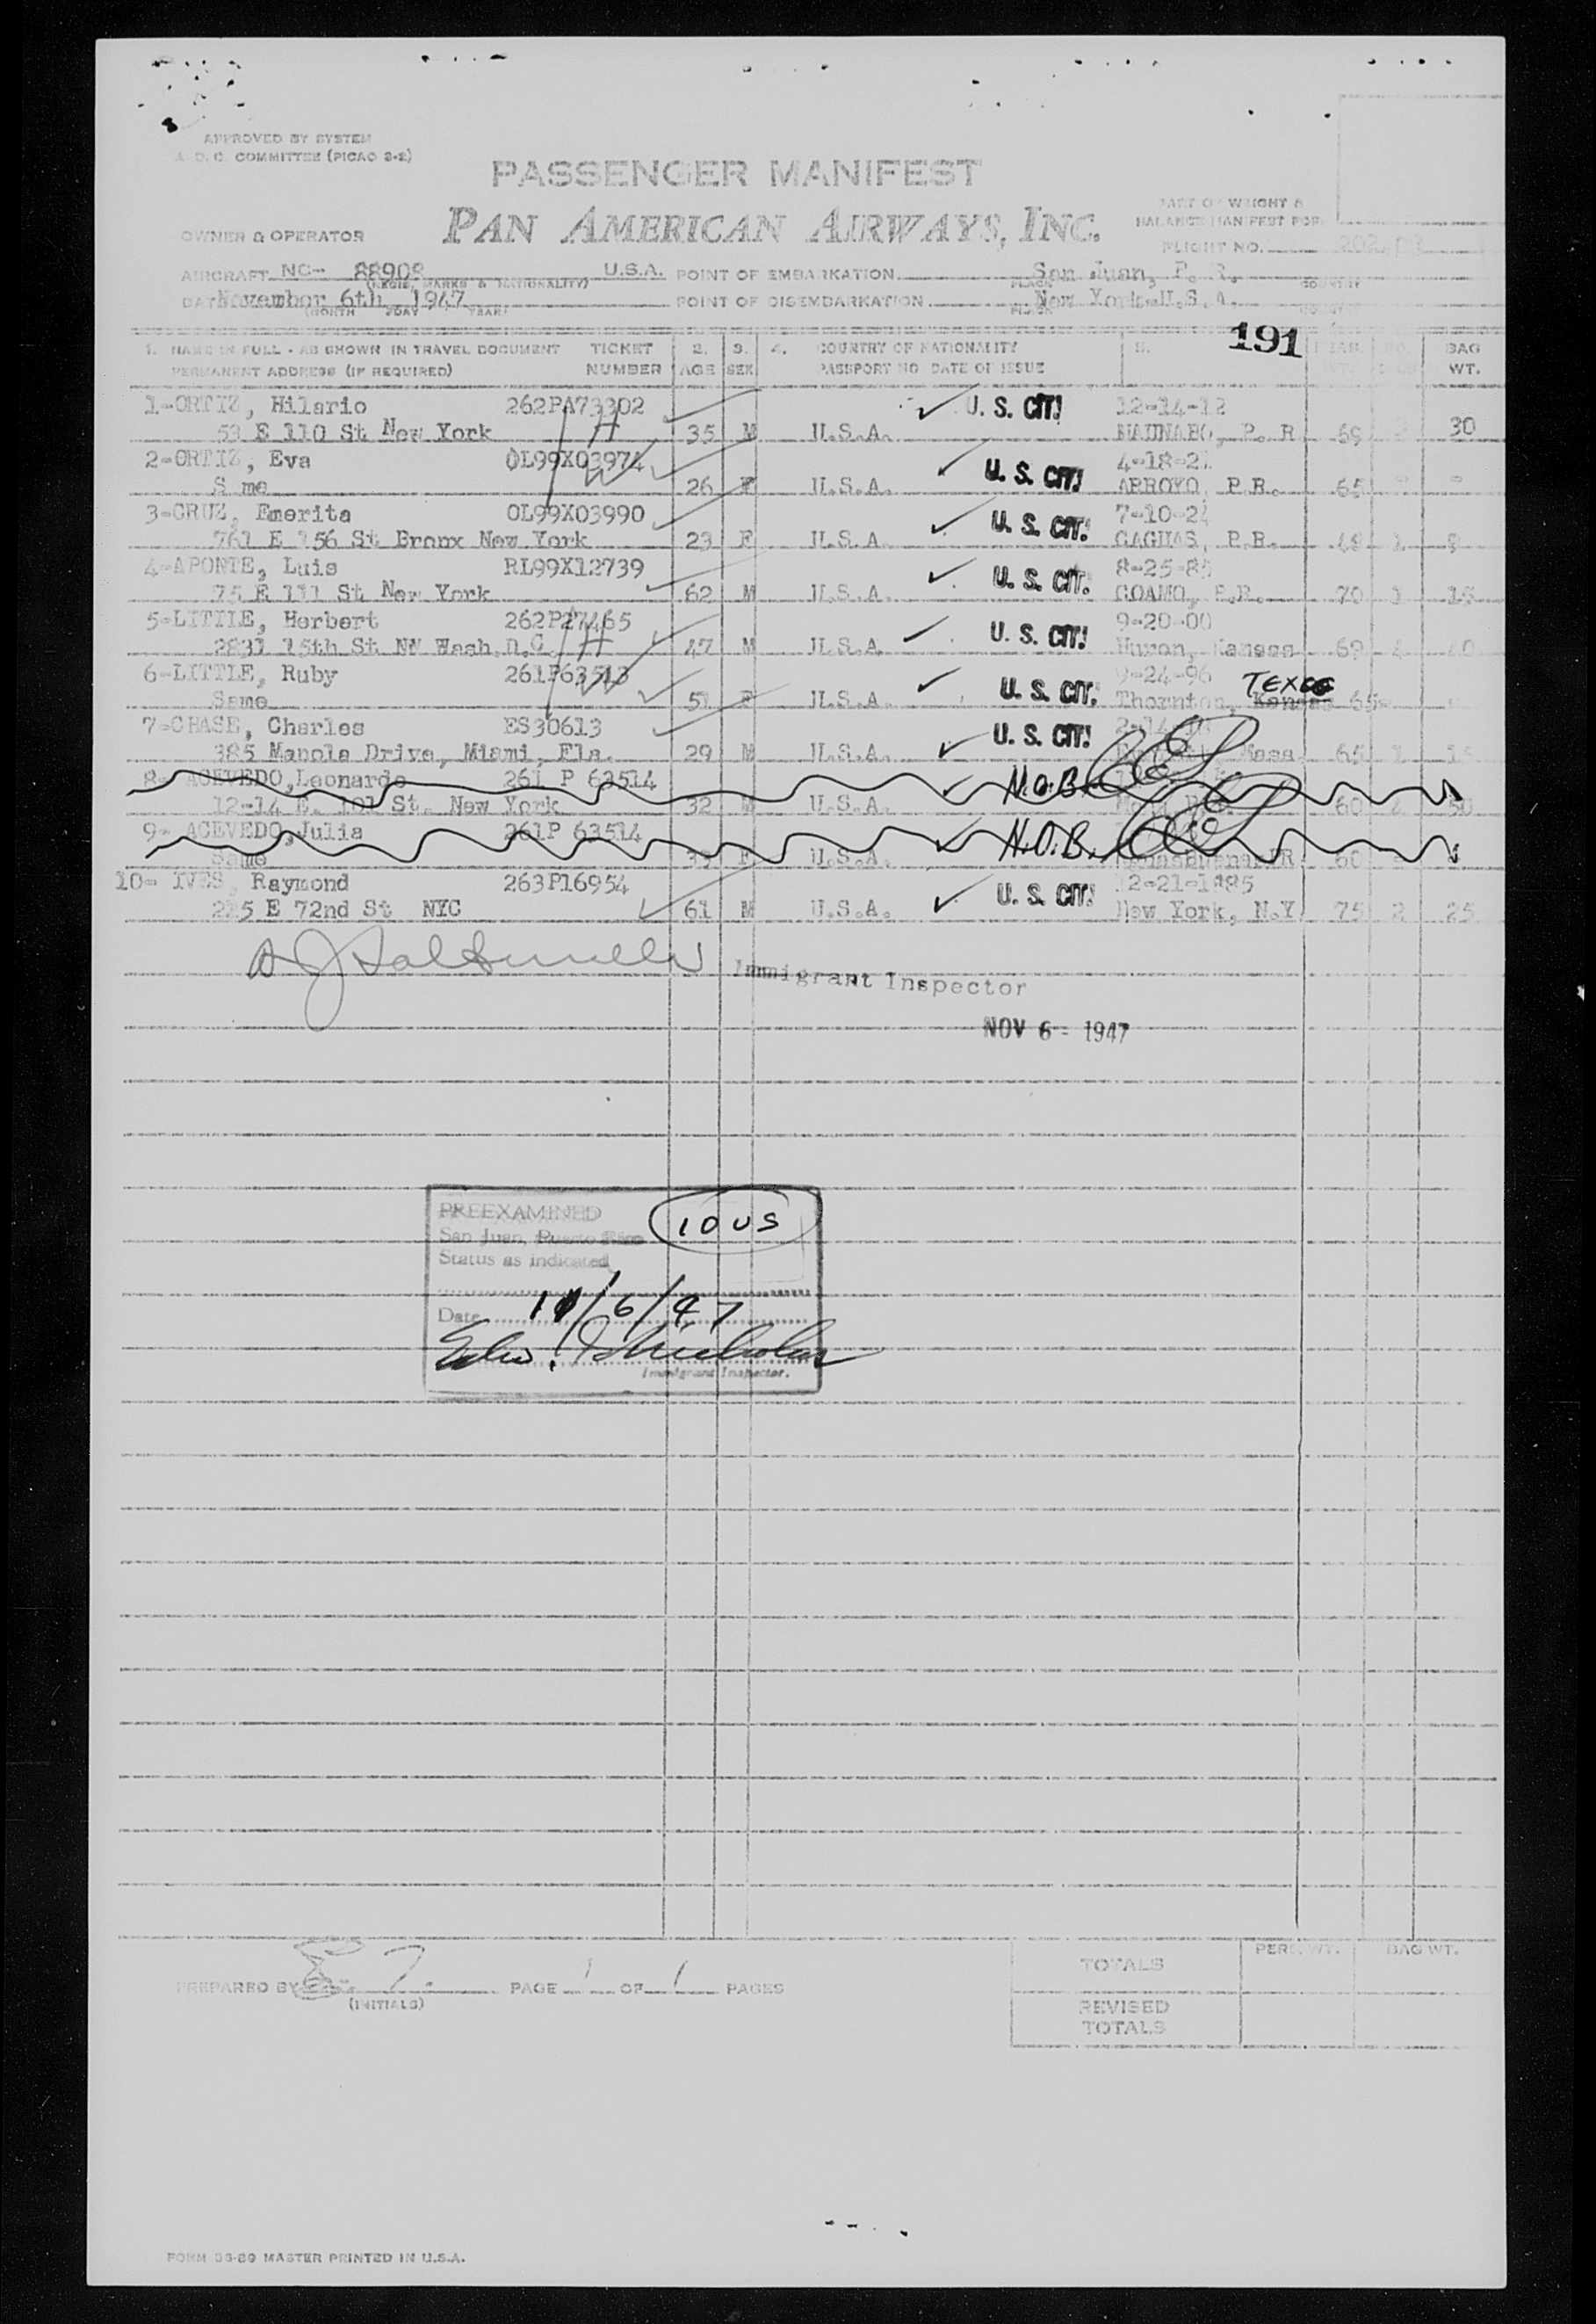 APPROVED BY SYSTEM
A. D. C. COMMITTEE (PICAO 2-2)
PASSENGER MANIFEST
PAN AMERICAN AIRWAYS, INC.
PART OF WEIGHT &
BALANCE MANIFEST FOR
OWNER & OPERATOR
FLIGHT NO.
AIRCRAFT NC- 88908 U.S.A. POINT OF EMBARKATION San Juan, P. R.
(REGIS. MARKS & NATIONALITY) PLACE COUNTRY
DATE November 6th, 1947 POINT OF DISEMBARKATION New York-U.S.A.
(MONTH DAY YEAR) PLACE
191
1. NAME IN FULL - AS SHOWN IN TRAVEL DOCUMENT TICKET 2. 3. 4. COUNTRY OF NATIONALITY 5. BAG
PERMANENT ADDRESS (IF REQUIRED) NUMBER AGE SEX PASSPORT NO DATE OF ISSUE WT.
1-ORTIZ, Hilario 262PA73302 U. S. CIT! 12-14-12
53 E 110 St New York H 35 M U.S.A. MAUNABO, P. R 69 30
2-ORTIZ, Eva OL99X03974 4-18-21
W 26 F U.S.A. U. S. CIT! ARROYO, P.R. 65 -
3-CRUZ, Emerita OL99X03990 7-10-24
761 E 156 St Bronx New York 23 F U.S.A. U. S. CIT! CAGUAS, P.R. 1
4-APONTE, Luis RL99X12739 8-25-85
75 E 111 St New York 62 M U.S.A. U. S. CIT. COAMO, P.R. 70 1 15
5-LITTLE, Herbert 262P27465 9-20-00
2831 15th St NW Wash.D.C. H 47 M U.S.A. U. S. CIT! Huron, Kansas 69 4 40
6-LITTLE, Ruby 261P63513 9-24-96 TEXAS
Same W 51 F U.S.A. U. S. CIT. Thornton, Kansas 65
7-CHASE, Charles ES30613 U. S. CIT!
385 Manola Drive, Miami, Fla. 29 M U.S.A. Mass. 65 1 15
8- ACEVEDO,Leonardo 261 P 63514 N.O.B.
12-14 E. 101 St. New York 32 M U.S.A. 60 50
9- ACEVEDO,Julia 261P 63514 N.O.B.
Same F U.S.A. PR 60
10- IVES, Raymond 263P16954 U. S. CIT! 12-21-1885
E 72nd St NYC 61 M U.S.A. New York, N.Y. 75 2 25
Immigrant Inspector
NOV 6 - 1947
PREEXAMINED 10 US
San Juan, Puerto Rico
Status as indicated
Date 11/6/47
Immigrant Inspector.
PREPARED BY PAGE 1 OF 1 PAGES
(INITIALS)
PERS. WT. BAG WT.
TOTALS
REVISED
TOTALS
FORM 36-89 MASTER PRINTED IN U.S.A.